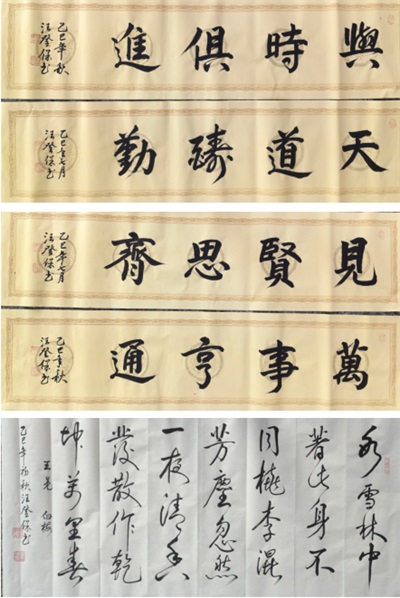 與時俱進
乙巳年秋
汪登保书
天道酬勤
乙巳年七月
汪登保书
見賢思齊
乙巳年七月
汪登保书
萬事亨通
乙巳年秋
汪登保书
冰雪林中
著此身不
同桃李混
芳塵忽然
一夜清香
發散作乾
坤萬里春
王冕 白梅
乙巳年初秋汪登保书